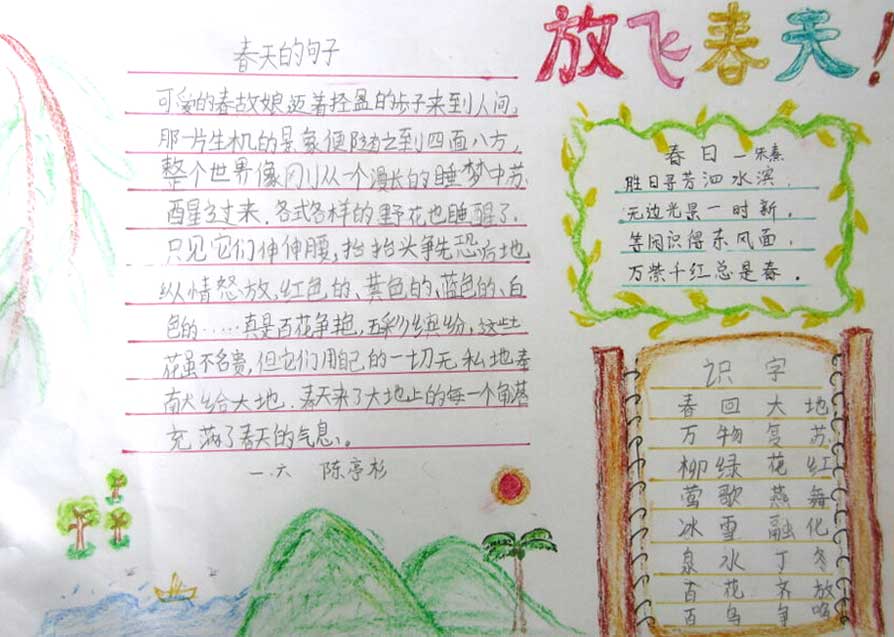 放飞春天!
春天的句子
可爱的春故娘迈着轻盈的步子来到人间,
那一片生机的景象便随之到四面八方,
整个世界像冈刂从一个漫长的睡梦中苏
醒过来.各式各样的野花也睡醒了.
只见它们伸伸腰,抬抬头争先恐后地
纵情怒放,红色的、黄色的、蓝色的、白
色的……真是百花争艳,五彩缤纷,这些
花虽不名贵,但它们用自己的一切无私地奉
献给大地.春天来了大地上的每一个角落
充满了春天的气息。
一.六 陈亭杉
春日 —朱熹
胜日寻芳泗水滨.
无边光景一时新,
等闲识得东风面,
万紫千红总是春.
识字
春回大地
万物复苏
柳绿花红
莺歌燕舞
冰雪融化
泉水丁冬
百花齐放
百鸟争鸣